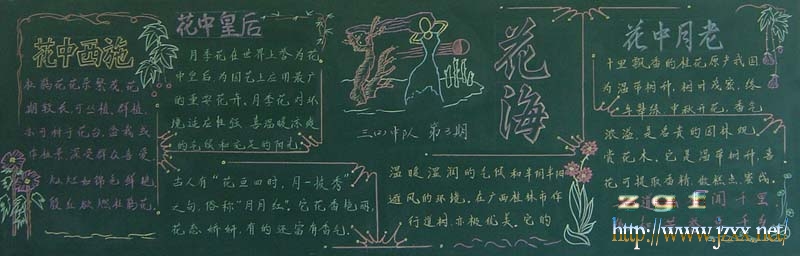 花中西施
杜鹃花花朵繁茂,花
期较长,可丛植,群植,
亦可种于花台,盆栽或
作盆景,深受群众喜爱。
灿灿如锦色鲜艳,
殷丘欲燃杜鹃花。
花中皇后
月季花在世界上誉为花
中皇后,为园艺上应用最广
的重要花卉。月季花对环
境适应性强,喜温暖凉爽
的气候和充足的阳光
古人有“花亘四时,月一披秀”
之句,俗称“月月红”。它花香艳丽,
花态娇妍,有的还富有香气。
三(1)中队 第3期
花海
温暖湿润的气候和半阴半阳
避风的环境。在广西桂林市作
行道树,亦极优美。它的
花中月老
十里飘香的桂花原产我国
为温带树种,树叶茂密,终
年翠绿,中秋开花,香气
浓溢,是名贵的园林观
赏花木。它是温带树种,喜
花可提取香精,做糕点,蜜饯,
闻千里,
zgf
http://www.jzxx.net/